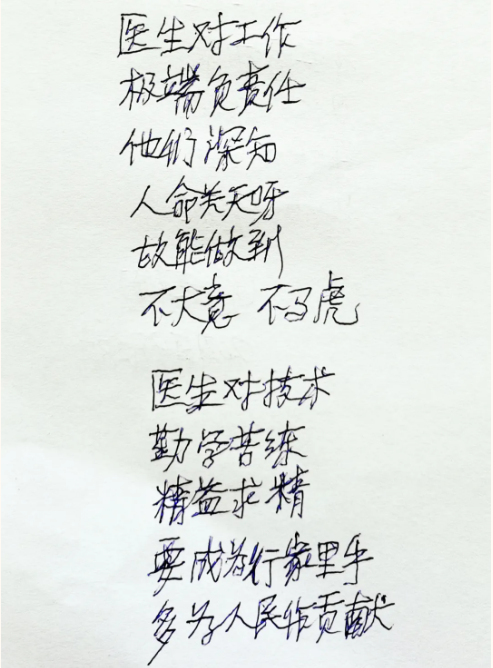 医生对工作
极端负责任
他们深知
人命关天呀
故能做到
不大意 不马虎
医生对技术
勤学苦练
精益求精
要成为行家里手
多为人民作贡献